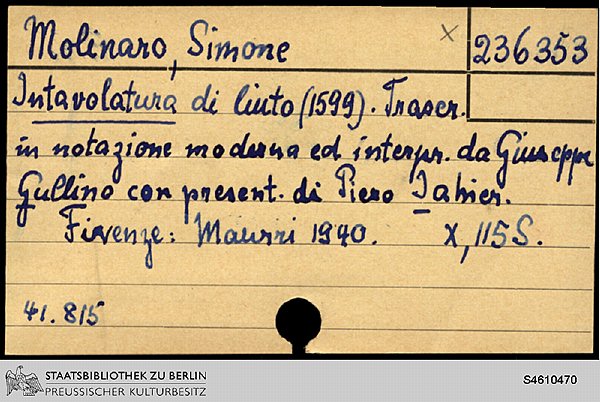 Molinaro, Simone x 236353
Intavolatura di liuto (1599). Trascr.
in notazione moderna ed interpr. da Giuseppe
Gullino con present. di Piero Jahier.
Firenze: Maurri 1940. X, 115 S.
41.815
STAATSBIBLIOTHEK ZU BERLIN
PREUSSISCHER KULTURBESITZ
S4610470